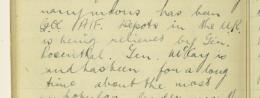 has been
G.O.C. A.I.F. Depots in the U.K.
is being relieved by Gen.
Rosenthal. Gen. McCay is
and has been for a long
time about the most